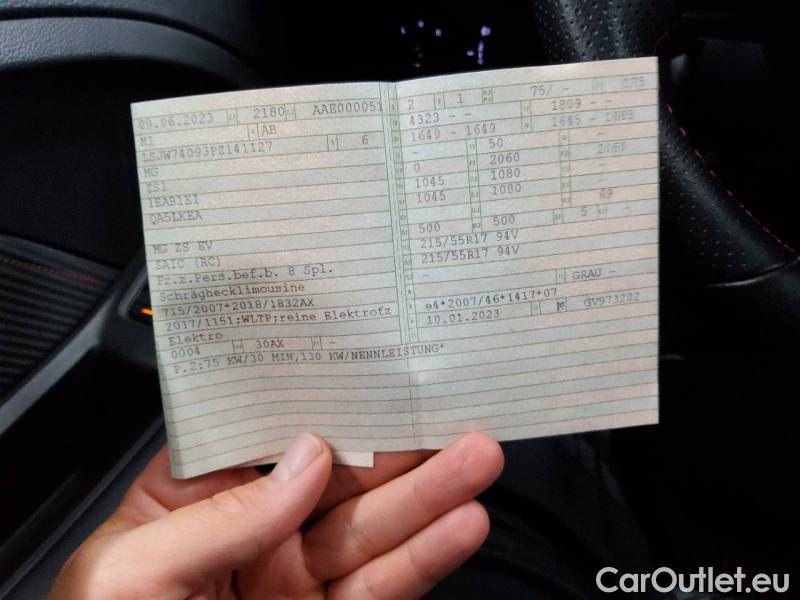 09.06.2023 2180 AAE000051
M1 AB
LSJW74093PZ141127 6
MG
ZS1
1EAB1E1
QA5LKEA
MG ZS EV
SAIC (RC)
Fz.z.Pers.bef.b. 8 Spl.
Schräghecklimousine
715/2007*2018/1832AX
2017/1151;WLTP;reine Elektrofz
Elektro
0004 30AX
P.2:75 KW/30 MIN,130 KW/NENNLEISTUNG*
2 1 75/ - 175
4323 - - 1809 - -
1649 - 1649 1645 -
- 50 -
0 2060
1045 1080 -
1045 1080 -
- - 69
500 500 5 -
215/55R17 94V
215/55R17 94V
-
- GRAU -
e4*2007/46*1417*07
10.01.2023 GV973202
CarOutlet.eu